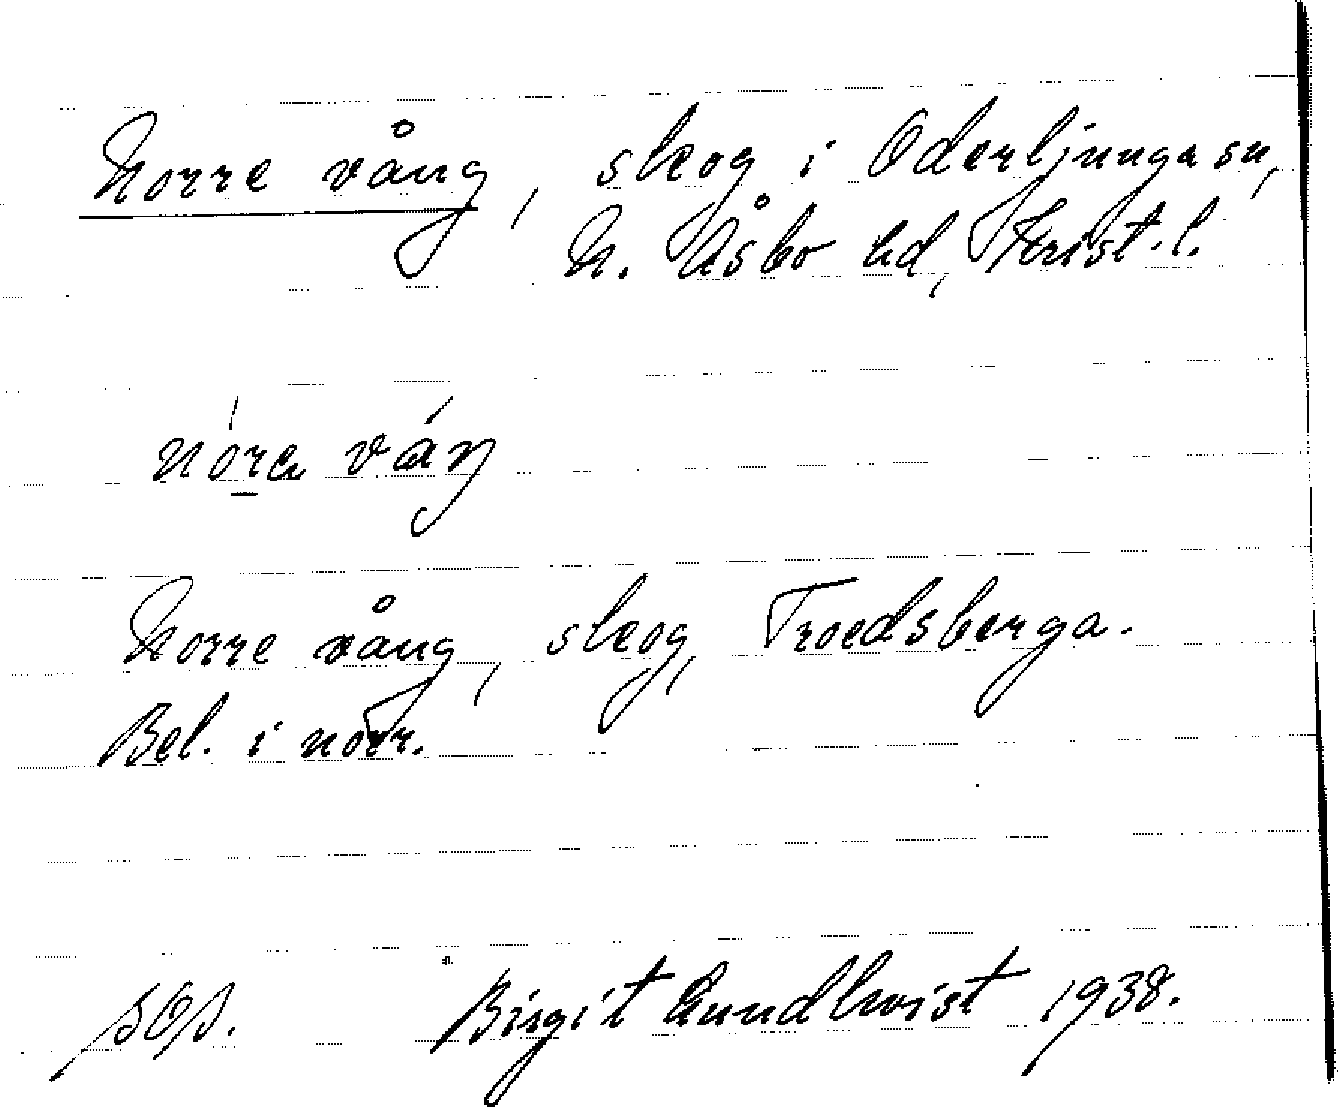 Norre vång, skog i Oderljunga sn,
N. Åsbo hd, Krist. l.
Norre vång, skog, Troedsberga.
Bel. i norr.
Birgit Lundkvist 1938.